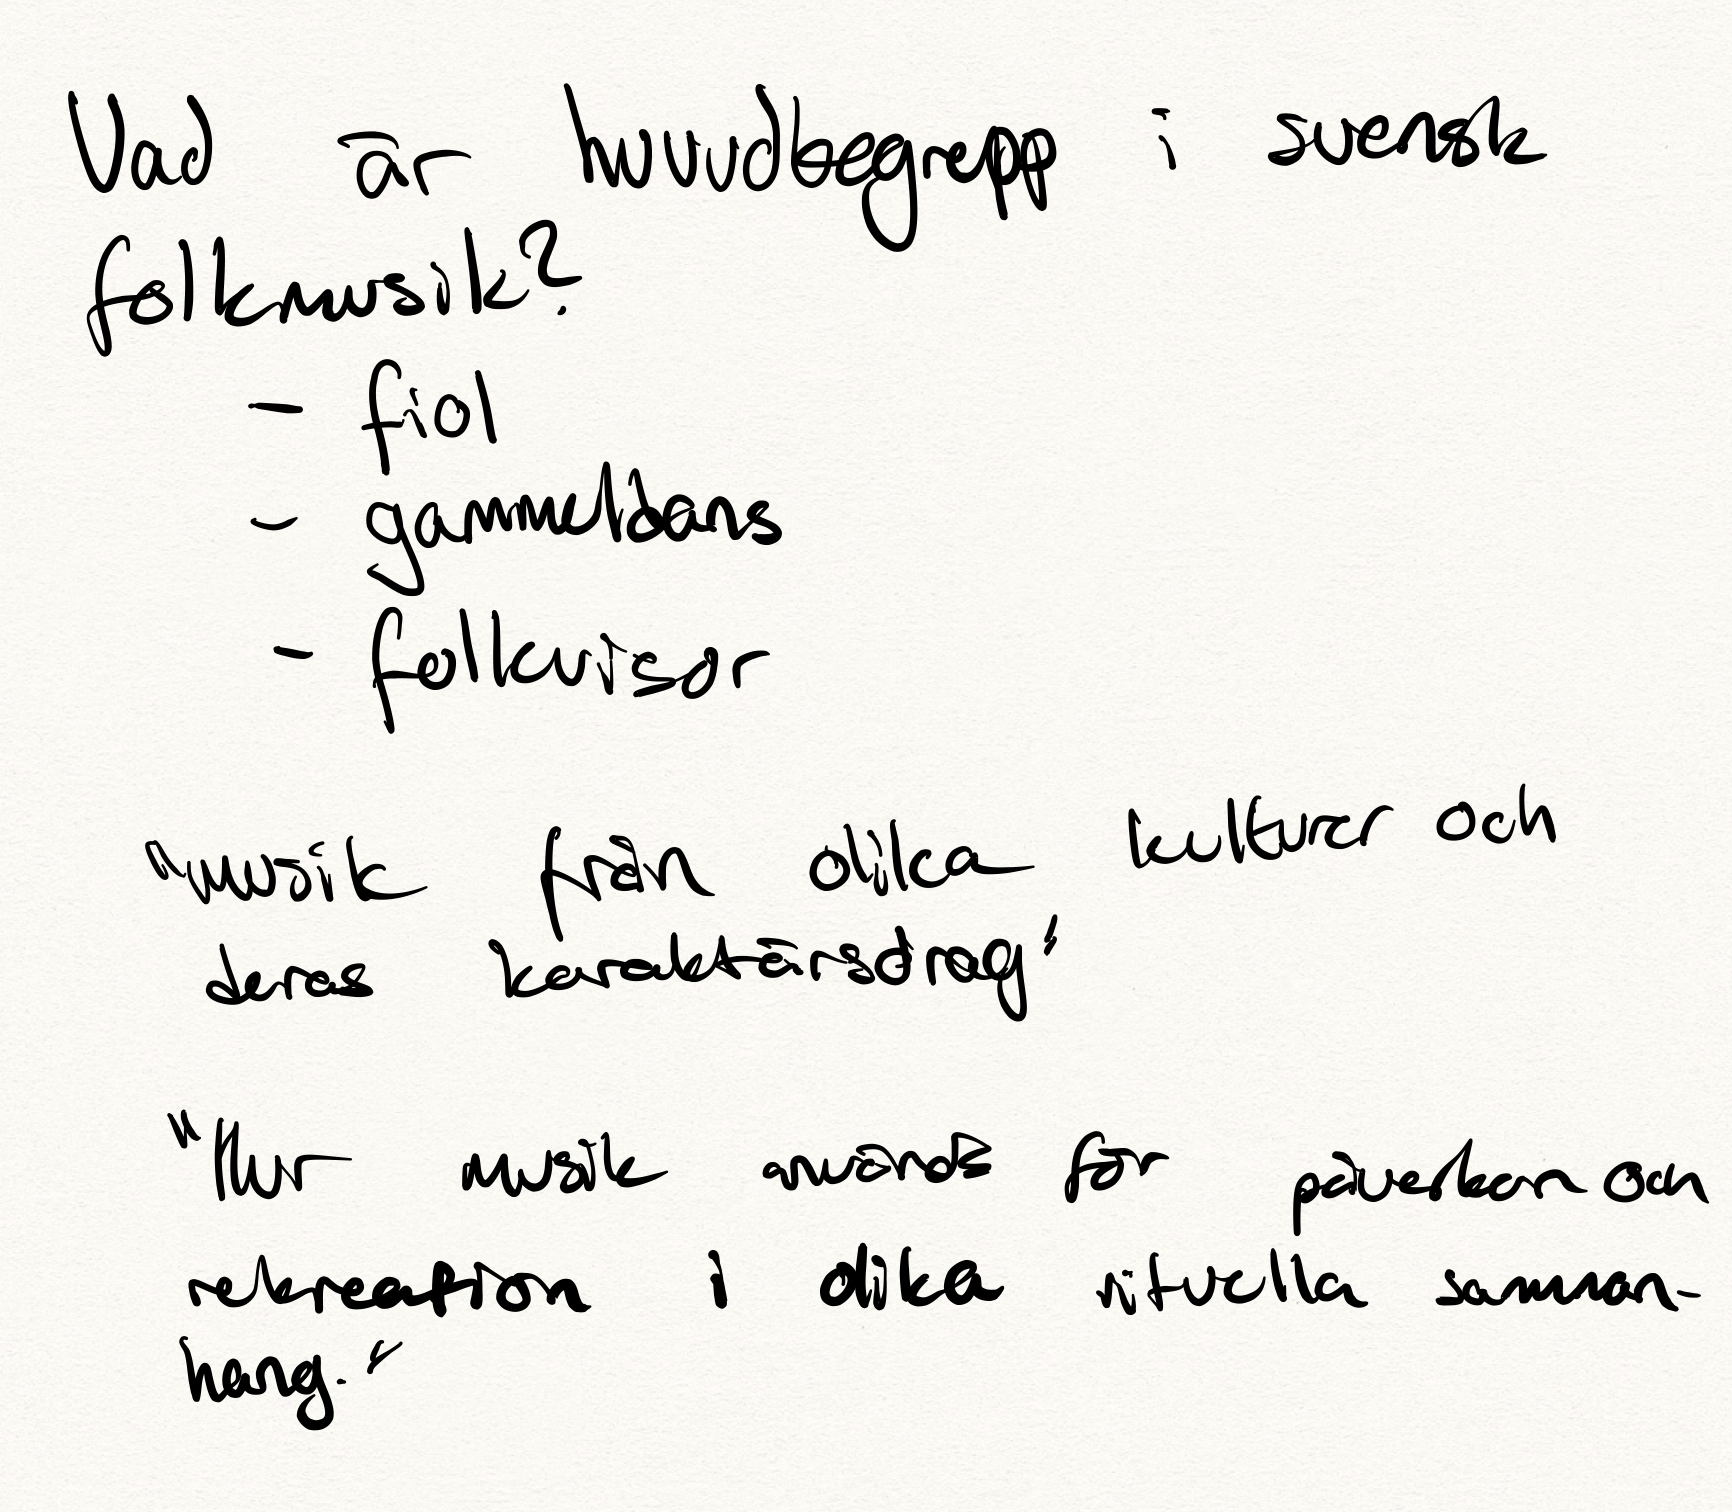 Vad är huvudbegrepp i svensk
folkmusik?
- fiol
- gammeldans
- folkvisor
"musik från olika kulturer och
deras karaktärsdrag"
"Hur musik används för påverkan och
rekreation i olika rituella samman-
hang."